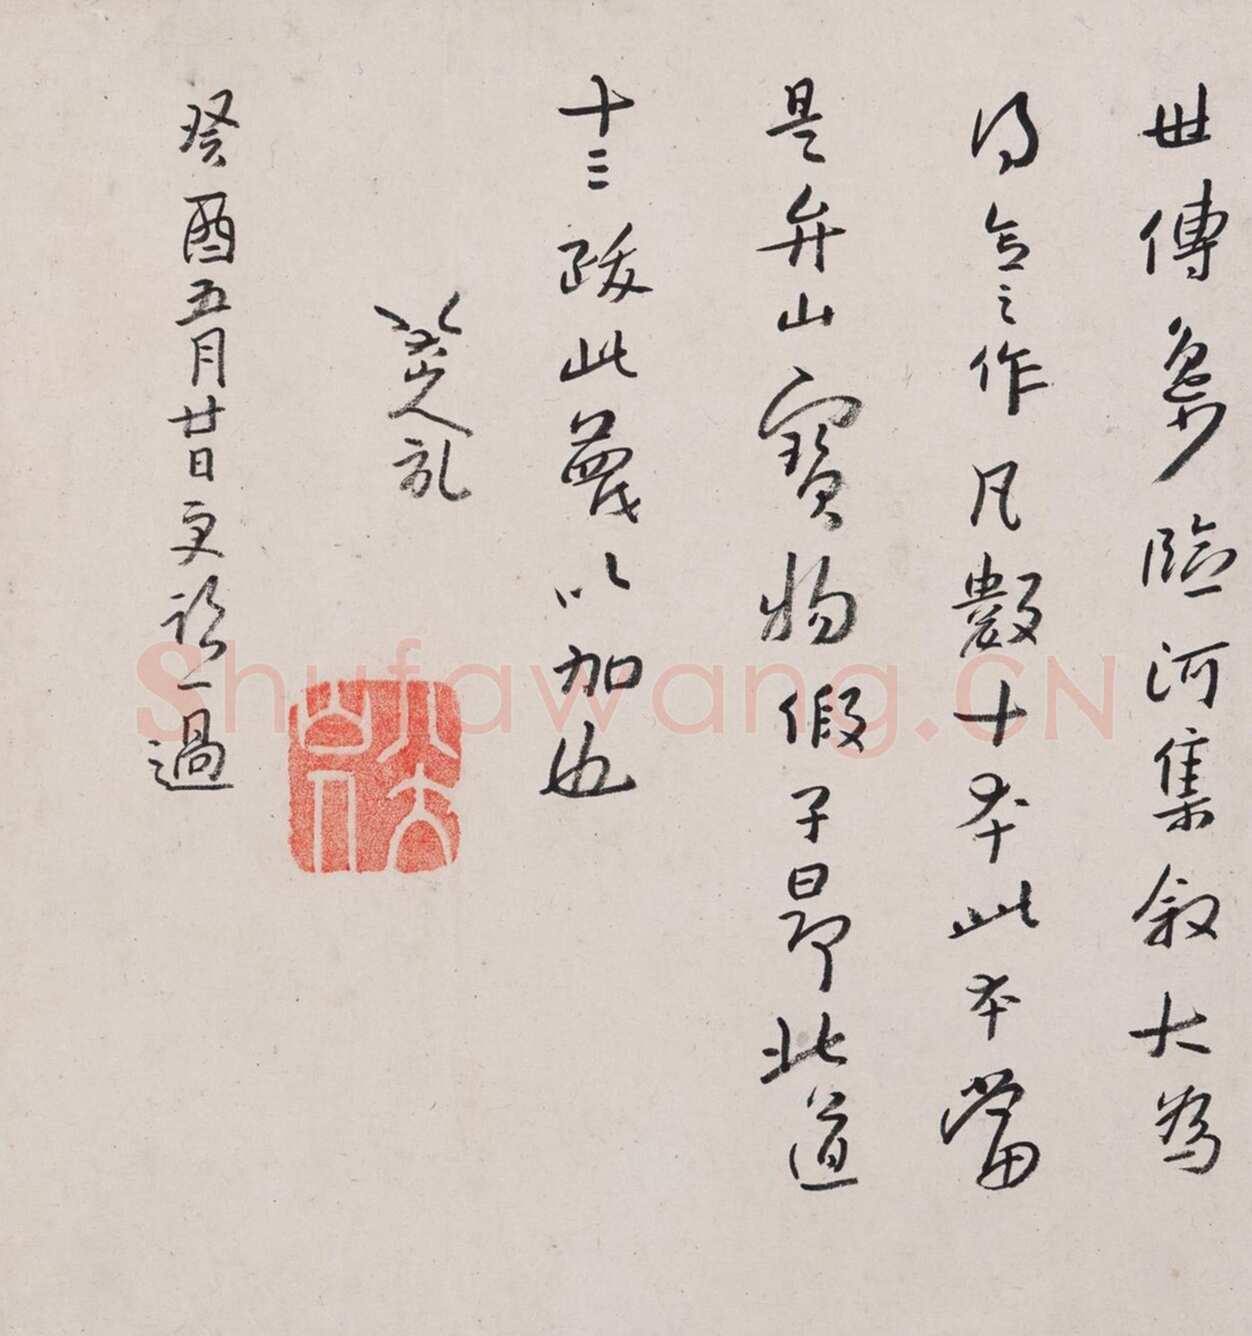 世傳臨河集叙大為
得意之作凡數十本此本當
是弁山寶物假子昂北道
十三跋此蔑以加也
八大山人記
癸酉五月廿日更臨一過
Shufawang.CN